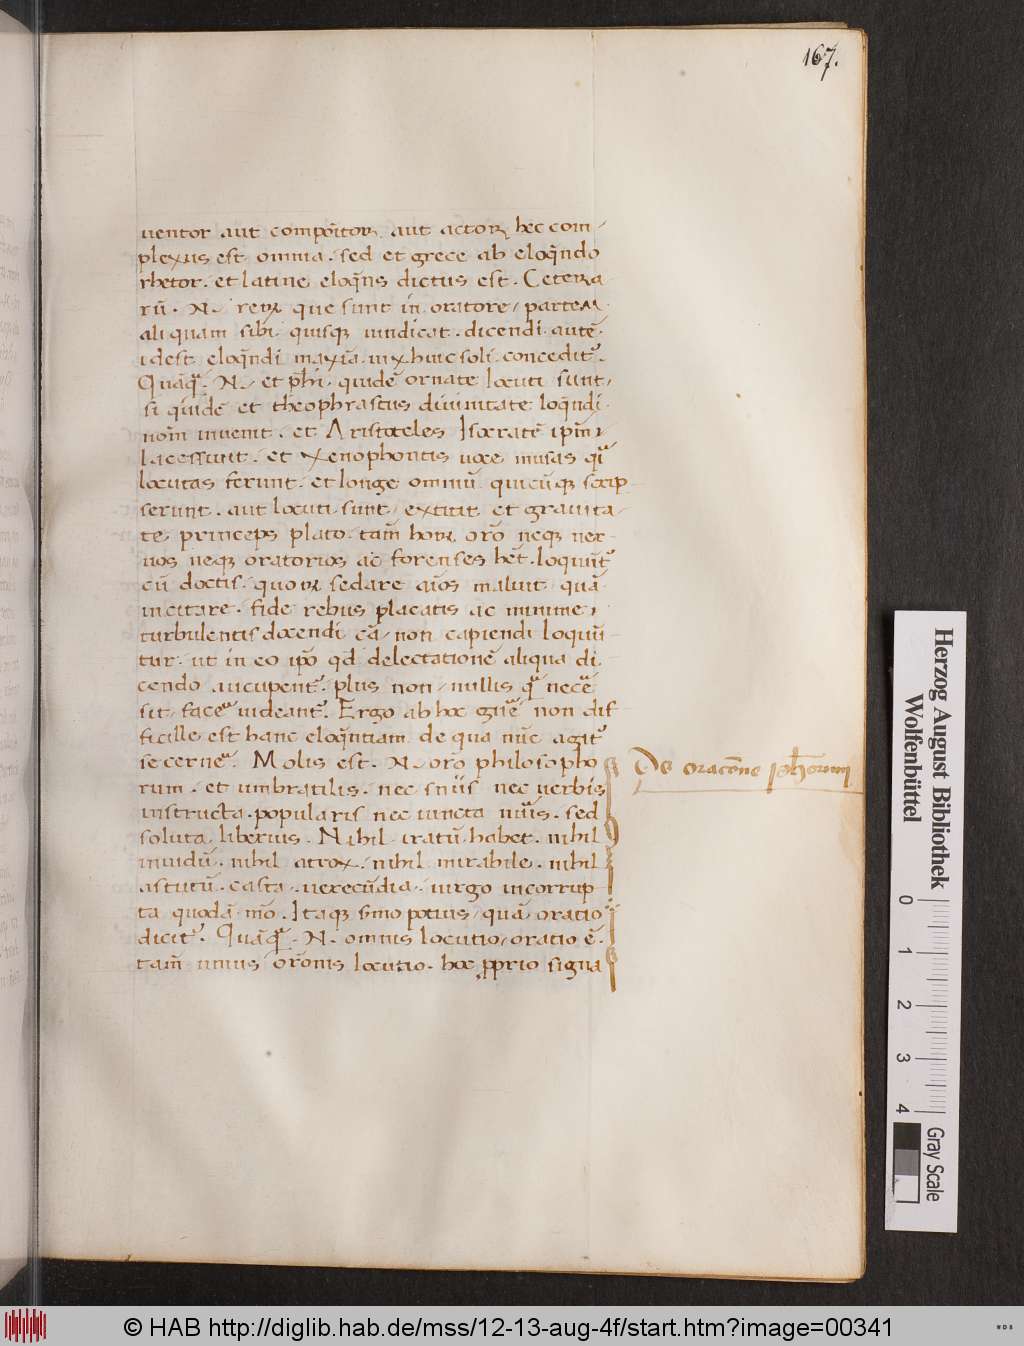 167.
uentor aut compoitor, aut actor, hec com-
plexus est omnia. sed et grece ab eloq̃ndo
rhetor. et latine eloq̃ns dictus est. Cetera
rū. N. rerꝝ que sunt in oratore, partem
aliquam sibi quisqꝫ uindicat. dicendi. autē.
idest eloq̃ndi maxīa uix huic soli concedit᷑.
Quãq̃. N. et phī. quidē ornate locuti sunt,
si quidē et theophrastus diuinitate loq̃ndi.
nom̃ inuenit. et Aristoteles Isocratē ipm̃
lacessunt. et Xenophontis uoce musas q̃
locutas ferunt. et longe omniū quicūqꝫ scrip
serunt. aut locuti sunt, extitit et grauita-
te princeps plato. tam̃ horꝝ orõ neqꝫ ner-
uos neqꝫ oratorios ac forenses het̃. loquunt᷑
cū doctis. quorꝝ sedare aīos malunt quã
incitare. fide rebus placatis ac minime,
turbulentis docendi cã, non capiendi loquū
tur. ut in eo ipõ qd̃ delectationē aliqua di
cendo aucupent᷑. plus non, nullis q̃ necẽ
sit, facẽ uideant᷑. Ergo ab hoc gñe non dif
ficille est hanc eloq̃ntiam de qua nūc agit᷑
secerneꝫ. Molis est. N. orõ philosopho
rum. et umbratilis. nec sniis nec uerbis
instructa. popularis nec iuncta nũis. sed
soluta liberius. Nihil iratū habet. nihil
inuidū. nihil atrox. nihil mirabile. nihil
astutū. casta. uerecūdia. uirgo incorrup
ta quodã mõ. Itaqꝫ smo potius, quã oratio
dicit᷑. Quãq̃. N. omnis locutio, oratio ē.
tam̃ unius orõnis locutio. hoc ꝓprio signa
De oracõne
Herzog August Bibliothek
Wolfenbüttel
0 1 2 3 4
Gray Scale
© HAB http://diglib.hab.de/mss/12-13-aug-4f/start.htm?image=00341